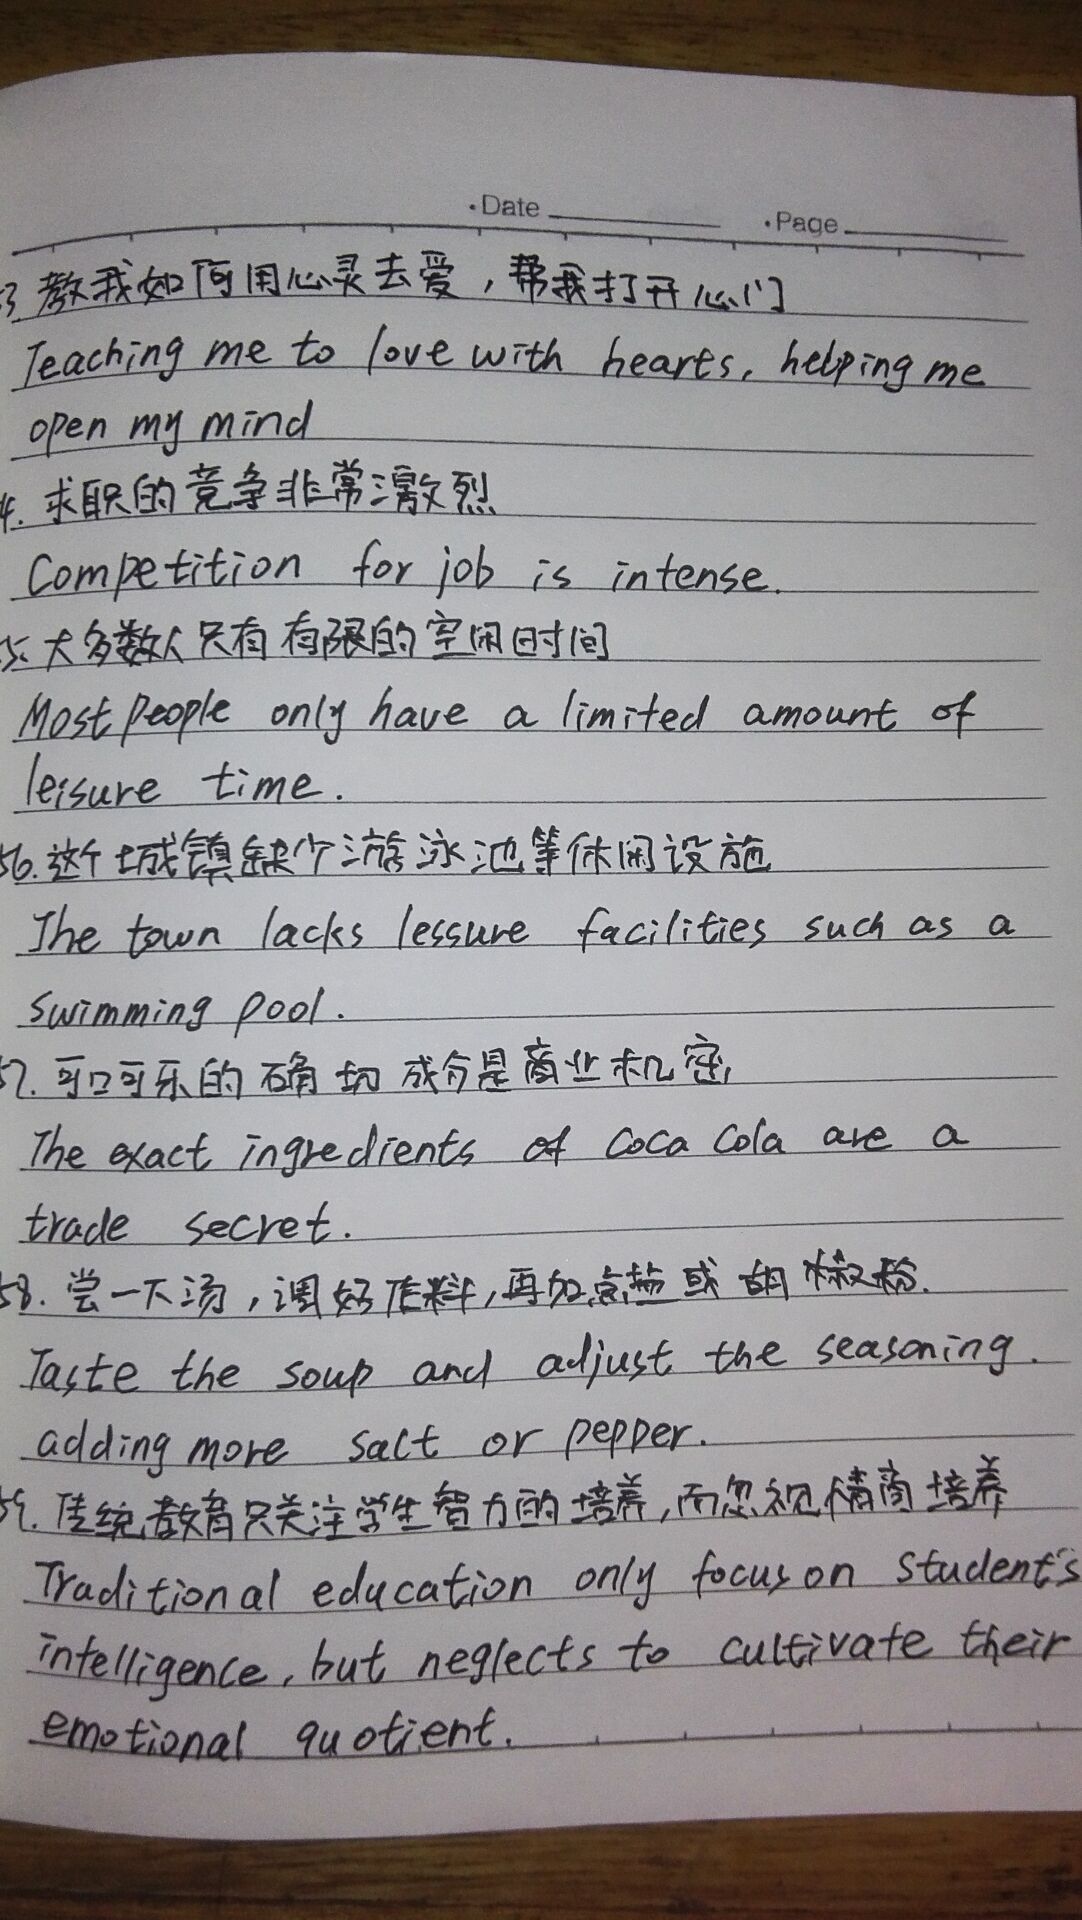 ·Date ·Page
3 教我如何用心灵去爱，帮我打开心门
Teaching me to love with hearts, helping me
open my mind
4. 求职的竞争非常激烈
Competition for job is intense.
5. 大多数人只有有限的空闲时间
Most people only have a limited amount of
leisure time.
56. 这个城镇缺少游泳池等休闲设施
The town lacks lessure facilities such as a
swimming pool.
57. 可口可乐的确切成分是商业机密
The exact ingredients of Coca Cola are a
trade secret.
58. 尝一下汤，调好作料，再加点盐或胡椒粉.
Taste the soup and adjust the seasoning.
adding more salt or pepper.
59. 传统教育只关注学生智力的培养，而忽视情商培养
Traditional education only focus on student's
intelligence, but neglects to cultivate their
emotional quotient.